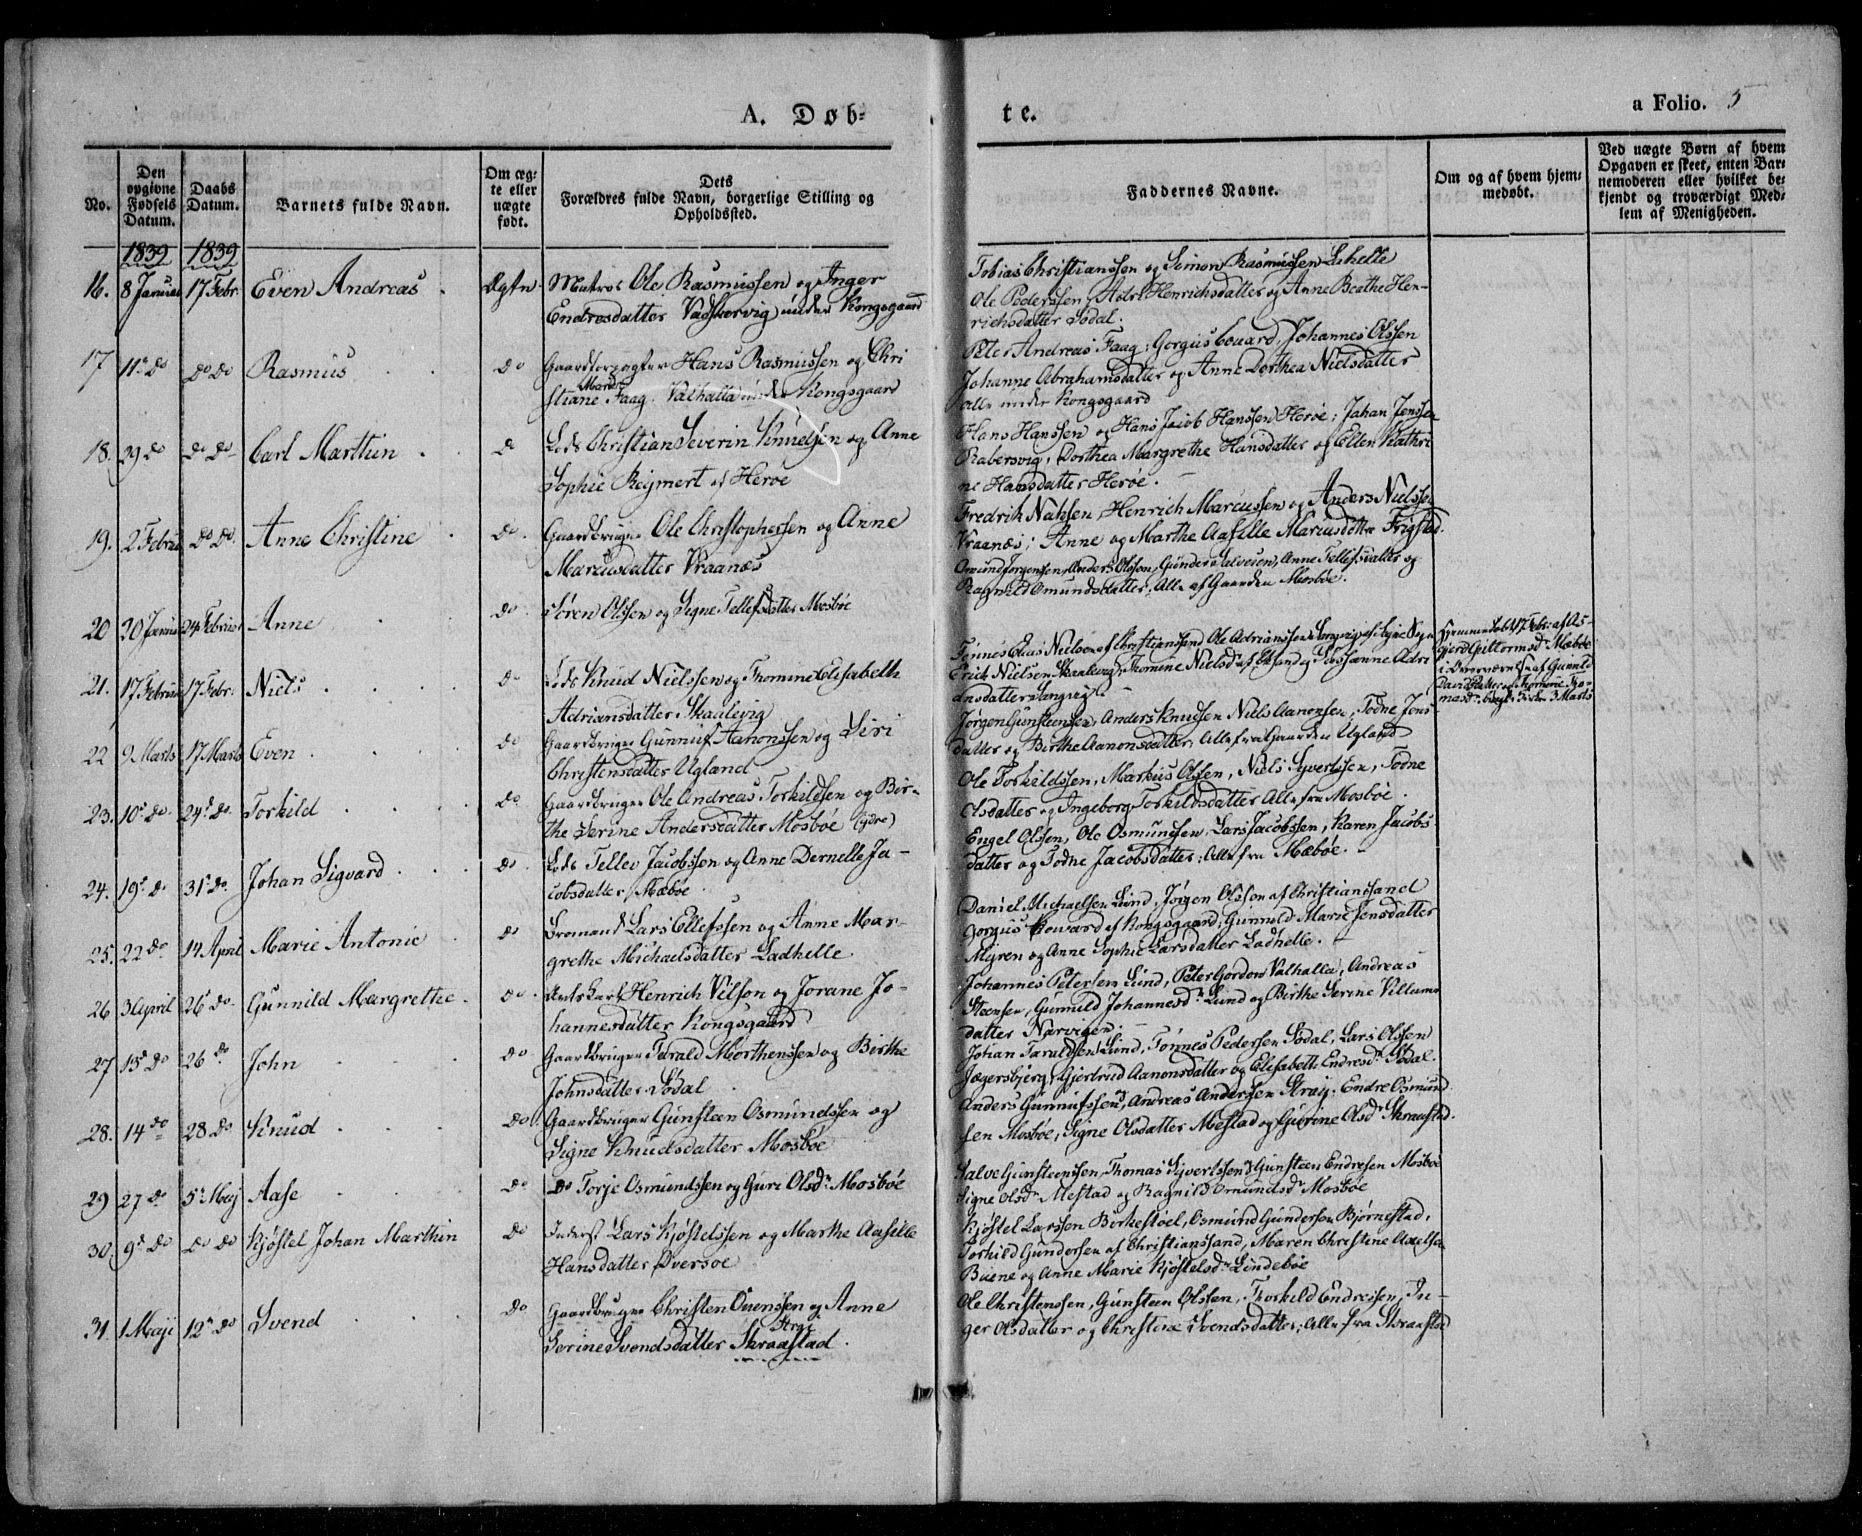 A. Døb-
te.
a Folio. 5
No.
Den opgivne Fødsels Datum.
Daabs Datum.
Barnets fulde Navn.
Om ægte eller uægte født.
Dets Forældres fulde Navn, borgerlige Stilling og Opholdssted.
Faddernes Navne.
Om og af hvem hjemmedøbt.
Ved uægte Børn af hvem Opgaven er skeet, enten Barnemoderen eller hvilket bekjendt og troværdigt Medlem af Menigheden.
1839 1839
16. 8 Januar 17 Febr. Even Andreas. Ægte. Matros Ole Rasmussen og Inger
Endresdatter Vadskervig under Kongsgaard
Tobias Christianssen og Simon Rasmussen Lahelle
Ole Pederssen, Henrichsdatter og Anne Beathe Hen-
richsdatter Sødal.
17 11te do do do Rasmus do Gaardforpagter Hans Rasmussen og Chri
stiane Maria Faag. Valhalla under Kongsgaard
Peter Andreas Faag, Gorgus Couard, Johannes Olssen
Johanne Abrahamsdatter og Anne Dorthea Nielsdatter
alle under Kongsgaard
18. 29 do do do Carl Marthin do Lods Christian Severin Knudsen og Anne
Sophie Reymert af Herøe
Hans Hanssen og Hans Jacob Hanssen Herøe; Johan Jenssen
Rabersvig, Dorthea Margrethe Hansdatter og Ellen Kathri
ne Hansdatter Herøe.
19. 2 Februar do do. Anne Christine do. Gaardbruger Ole Christophersen og Anne
Marcusdatter Vraanæs
Fredrik Natvsen, Henrich Marcussen og Anders Nielssen
Vraanæs; Anne og Marthe Aasille Marcusdattre Frigstad.
20 30 Januar 24 Februar Anne do. Søren Olssen og Signe Tellefsdatter Mosbøe
Omund Jørgensen, Anders Olsson, Gunder Salvesen, Anne Tellefsdatter og
Ragnild Omundsdatter, Alle af Gaarden Mosbøe.
21. 17 Februar 17 Febr. Niels do Lods Knud Nielssen og Thomine Elisabeth
Adriansdatter Skaalevig
Tønnes Elias Nielsen af Christiansund, Ole Adrianssen Langvig
Erich Nielsen Skaalevig, Thomine Nielsd. og Susanne Adri
ansdatter Langvig
Hjemmedøbt 17 Febr. af As-
gjerd Guttormsd. Mæbøe
i Overværelse af Gunild
Davidsdatter og Thomine Tho-
masd.
22 9 Marts 17 Marts Even. do Gaardbruger Gunnuf Aanonssen og Siri
Christensdatter Ugland
Jørgen Gunsteensen, Anders Knudsen, Niels Aanonsen, Todne Jons
datter og Birthe Aanonsdatter, Alle fra Gaarden Ugland
23. 10de do. 24de do. Torkild do. Gaardbruger Ole Andreas Torkildsen og Bir-
the Serine Andersdatter Mosbøe (ydre)
Ole Torkildssen, Markus Olssen, Niels Syvertssen, Todne
Olsdatter og Ingeborg Torkildsdatter Alle fra Mosbøe.
24. 19de do 31te do. Johan Sigvard do. Lods Tellev Jacobssen og Anne Pernelle Ja-
cobsdatter Mæbøe.
Engel Olssen, Ole Osmundsen, Lars Jacobssen, Karen Jacobs
datter og Todne Jacobsdatter; Alle fra Mæbøe.
25. 22 do. 14 April Marie Antonie do Sømand Lars Ellefssen og Anne Mar-
grethe Michaelsdatter Ladhelle
Daniel Michaelsen Lund, Jørgen Olsson af Christianssand
Gorgus Koward af Kongsgaard, Gunnild Marie Jensdatter
Myren og Anne Sophie Larsdatter Ladhelle.
26 3 April 26 do. Gunnild Margrethe. do. Henrich Vilson og Jorane Jo-
hannesdatter Kongsgaard
Johannes Petersen Lund, Peter Gordon Valhalla, Andreas
Steensen, Gunnild Johannesd. Lund og Birthe Serine Villums
datter Narvigen.
27 13de do 26 do. John do Gaardbruger Tarald Morthenssen og Birthe
Johnsdatter Sødal
Johan Taraldsen Lund, Tønnes Pedersen Sødal, Lars Olssen
Jægersbjerg, Gjertrud Aanonsdatter og Elisabeth Endresd. Sødal.
28. 14 do 28 do Knud do Gaardbruger Gunsteen Osmundssen og
Signe Knudsdatter Mosbøe
Anders Gunnufssen, Andreas Andersen Stray. Endre Osmund
sen Mosbøe, Signe Olsdatter Mestad og Gurine Olsd. Skraastad.
29 27 do 5te Maj Aase do do Torje Osmundssen og Guri Olsd. Mosbøe
Salve Gunsteenssen, Thomas Syvertssen, Gunsteen Endresen Mosbøe
Signe Olsd. Mestad og Ragnild Omundsd. Mosbøe
30. 9de do do do Kjøstel Johan Marthin do Inderst Lars Kjøstelssen og Marthe Aasille
Hansdatter Øversøe
Kjøstel Larssen Birkestøel, Osmund Gunderson Bjørnestad,
Torkild Gundersen af Christianssand, Maren Christine Axelsen
Buene og Anne Marie Kjøstelsd. Lindebøe
31 1 Maji 12te do Svend do Gaardbruger Christen Ouenssen og Anne
Serine Svendsdatter Skraastad Strai
Ole Christenssen, Gunsteen Olssen, Thorkild Endresen, In-
ger Olsdatter og Christine Svendsdatter; Alle fra Skraastad